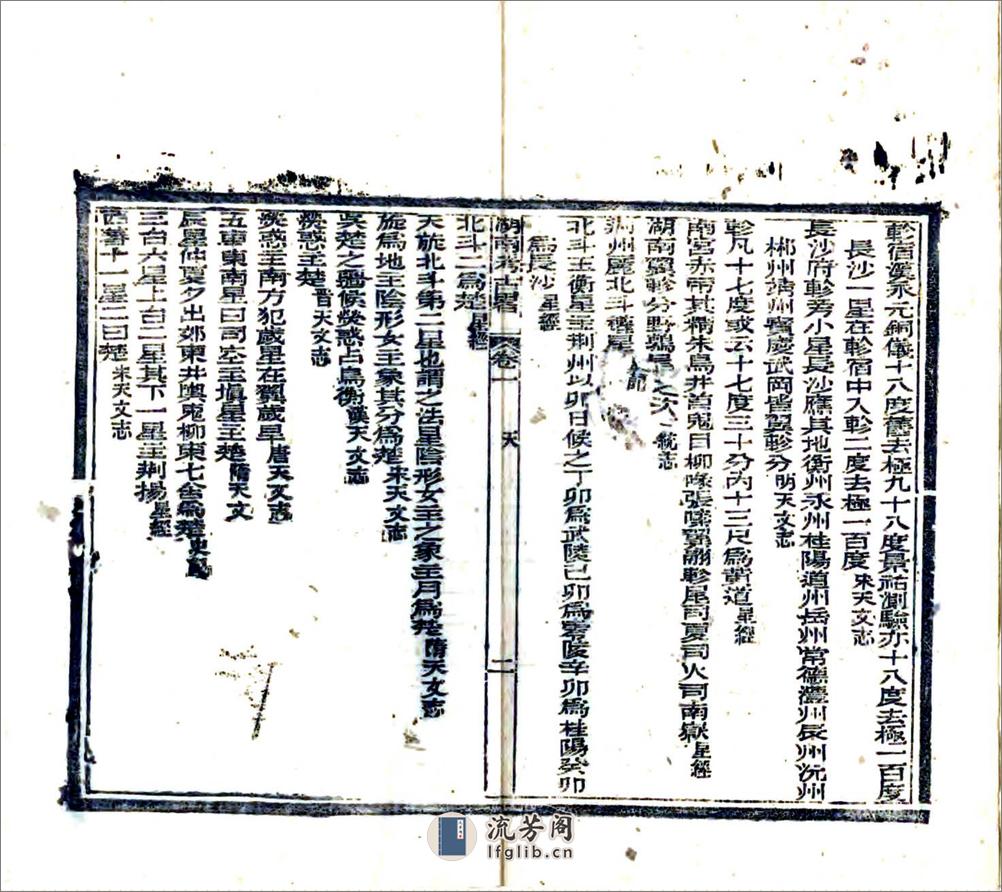 軫宿漢永元銅儀十八度舊去極九十八度景祐測驗亦十八度去極一百度
長沙一星在軫宿中入軫二度去極一百度宋天文志
長沙府軫旁小星長沙應其地衡州永州桂陽道州岳州常德澧州辰州沅州
郴州靖州寶慶武岡皆翼軫分明天文志
軫凡十七度或云十七度三十分內十三尺為黃道星經
南宮赤帝其精朱鳥井首鬼目柳喙張嗉翼翮軫尾司夏司火司南嶽星經
湖南翼軫分野鶉尾之次一統志
荊州屬北斗
北斗玉衡星主荊州以卯日候之丁卯為武陵己卯為零陵辛卯為桂陽癸卯
為長沙星經
湖南考古略 卷一 天 二
北斗二為楚星經
天旋北斗第二星也謂之法星陰形女主之象主月為楚隋天文志
旋為地主陰形女主象其分為楚宋天文志
吳楚之疆候熒惑占鳥衡漢天文志
熒惑主楚晉天文志
熒惑主南方犯歲星在翼歲旱唐天文志
五車東南星曰司空主填星主楚隋天文
辰星仲夏夕出郊東井輿鬼柳東七舍為楚史記
三台六星上台二星其下一星主荊揚星經
舊十一星二曰楚宋天文志
流芳阁
lfglib.cn